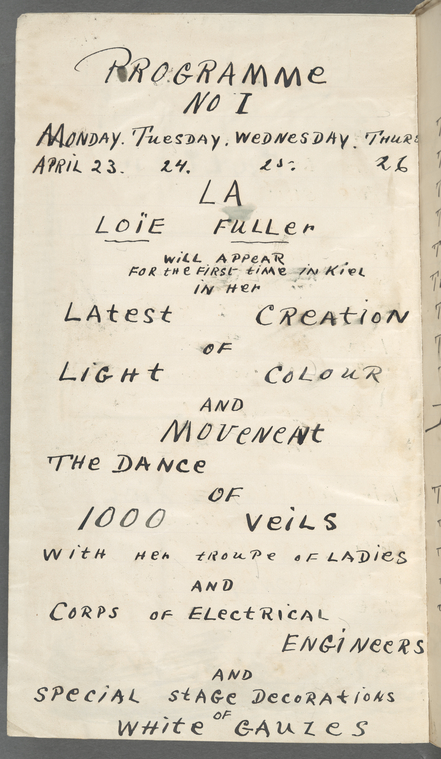 PROGRAMME
NO I
MONDAY. TUESDAY. WEDNESDAY. THURS
APRIL 23. 24. 25. 26
LA
LOÏE FULLER
WILL APPEAR
FOR THE FIRST TIME IN KIEL
IN HER
LATEST CREATION
OF
LIGHT COLOUR
AND
MOVEMENT
THE DANCE
OF
1000 VEILS
WITH HER TROUPE OF LADIES
AND
CORPS OF ELECTRICAL
ENGINEERS
AND
SPECIAL STAGE DECORATIONS
OF
WHITE GAUZES